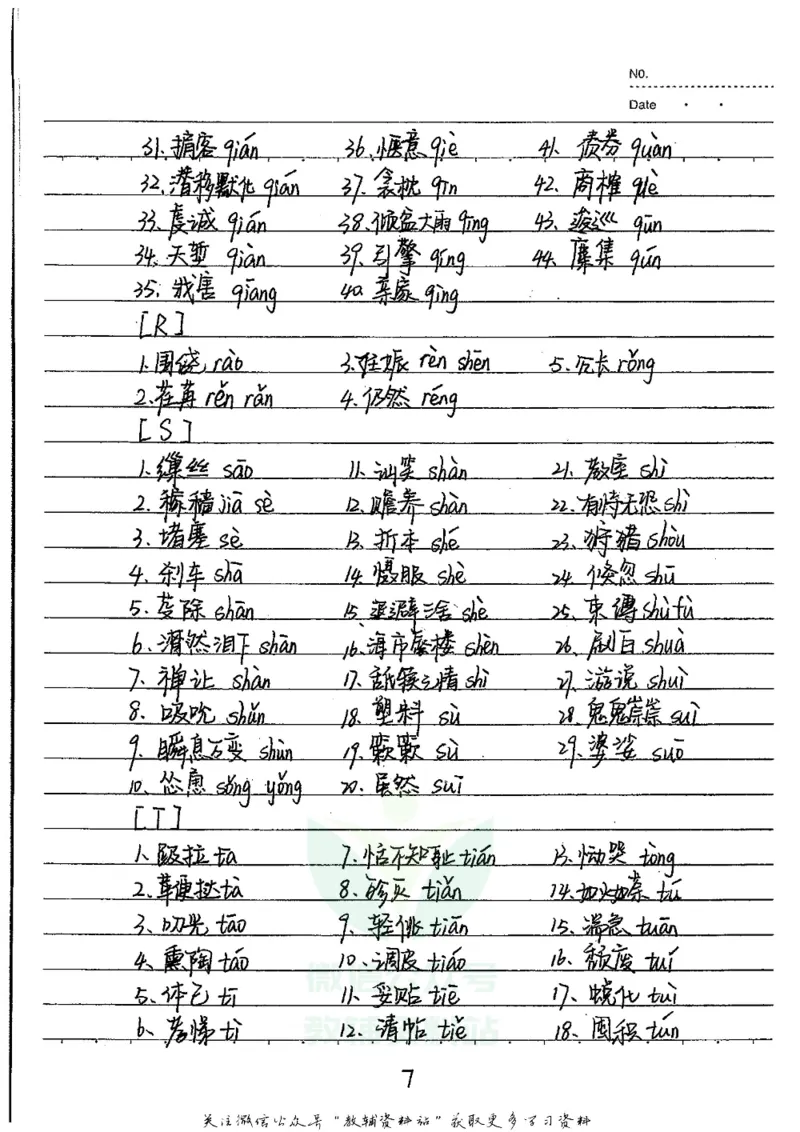 No.
Date
31. 掮客 qián 36. 惬意 qiè 41. 债券 quàn
32. 潜移默化 qián 37. 衾枕 qīn 42. 商榷 què
33. 虔诚 qián 38. 倾盆大雨 qīng 43. 逡巡 qūn
34. 天堑 qiàn 39. 引擎 qíng 44. 麇集 qún
35. 戕害 qiāng 40. 亲家 qìng
[R]
1. 围绕 rào 3. 妊娠 rèn shēn 5. 冗长 rǒng
2. 荏苒 rěn rǎn 4. 仍然 réng
[S]
1. 缫丝 sāo 11. 讪笑 shàn 21. 教室 shì
2. 稼穑 jià sè 12. 赡养 shàn 22. 有恃无恐 shì
3. 堵塞 sè 13. 折本 shé 23. 狩猎 shòu
4. 刹车 shā 14. 慑服 shè 24. 倏忽 shū
5. 芟除 shān 15. 退避三舍 shè 25. 束缚 shù fù
6. 潸然泪下 shān 16. 海市蜃楼 shèn 26. 刷白 shuà
7. 禅让 shàn 17. 舐犊之情 shì 27. 游说 shuì
8. 吸吮 shǔn 18. 塑料 sù 28. 鬼鬼祟祟 suì
9. 瞬息万变 shùn 19. 簌簌 sù 29. 婆娑 suō
10. 怂恿 sǒng yǒng 20. 虽然 suī
[T]
1. 趿拉 tā 7. 恬不知耻 tián 13. 恸哭 tòng
2. 鞭挞 tà 8. 殄灭 tiǎn 14. 如火如荼 tú
3. 叨光 tāo 9. 轻佻 tiāo 15. 湍急 tuān
4. 熏陶 táo 10. 调皮 tiáo 16. 颓废 tuí
5. 体己 tī 11. 妥贴 tiē 17. 蜕化 tuì
6. 孝悌 tì 12. 请帖 tiě 18. 囤积 tún
微信公众号
教辅资料站
7
关注微信公众号"教辅资料站"获取更多学习资料